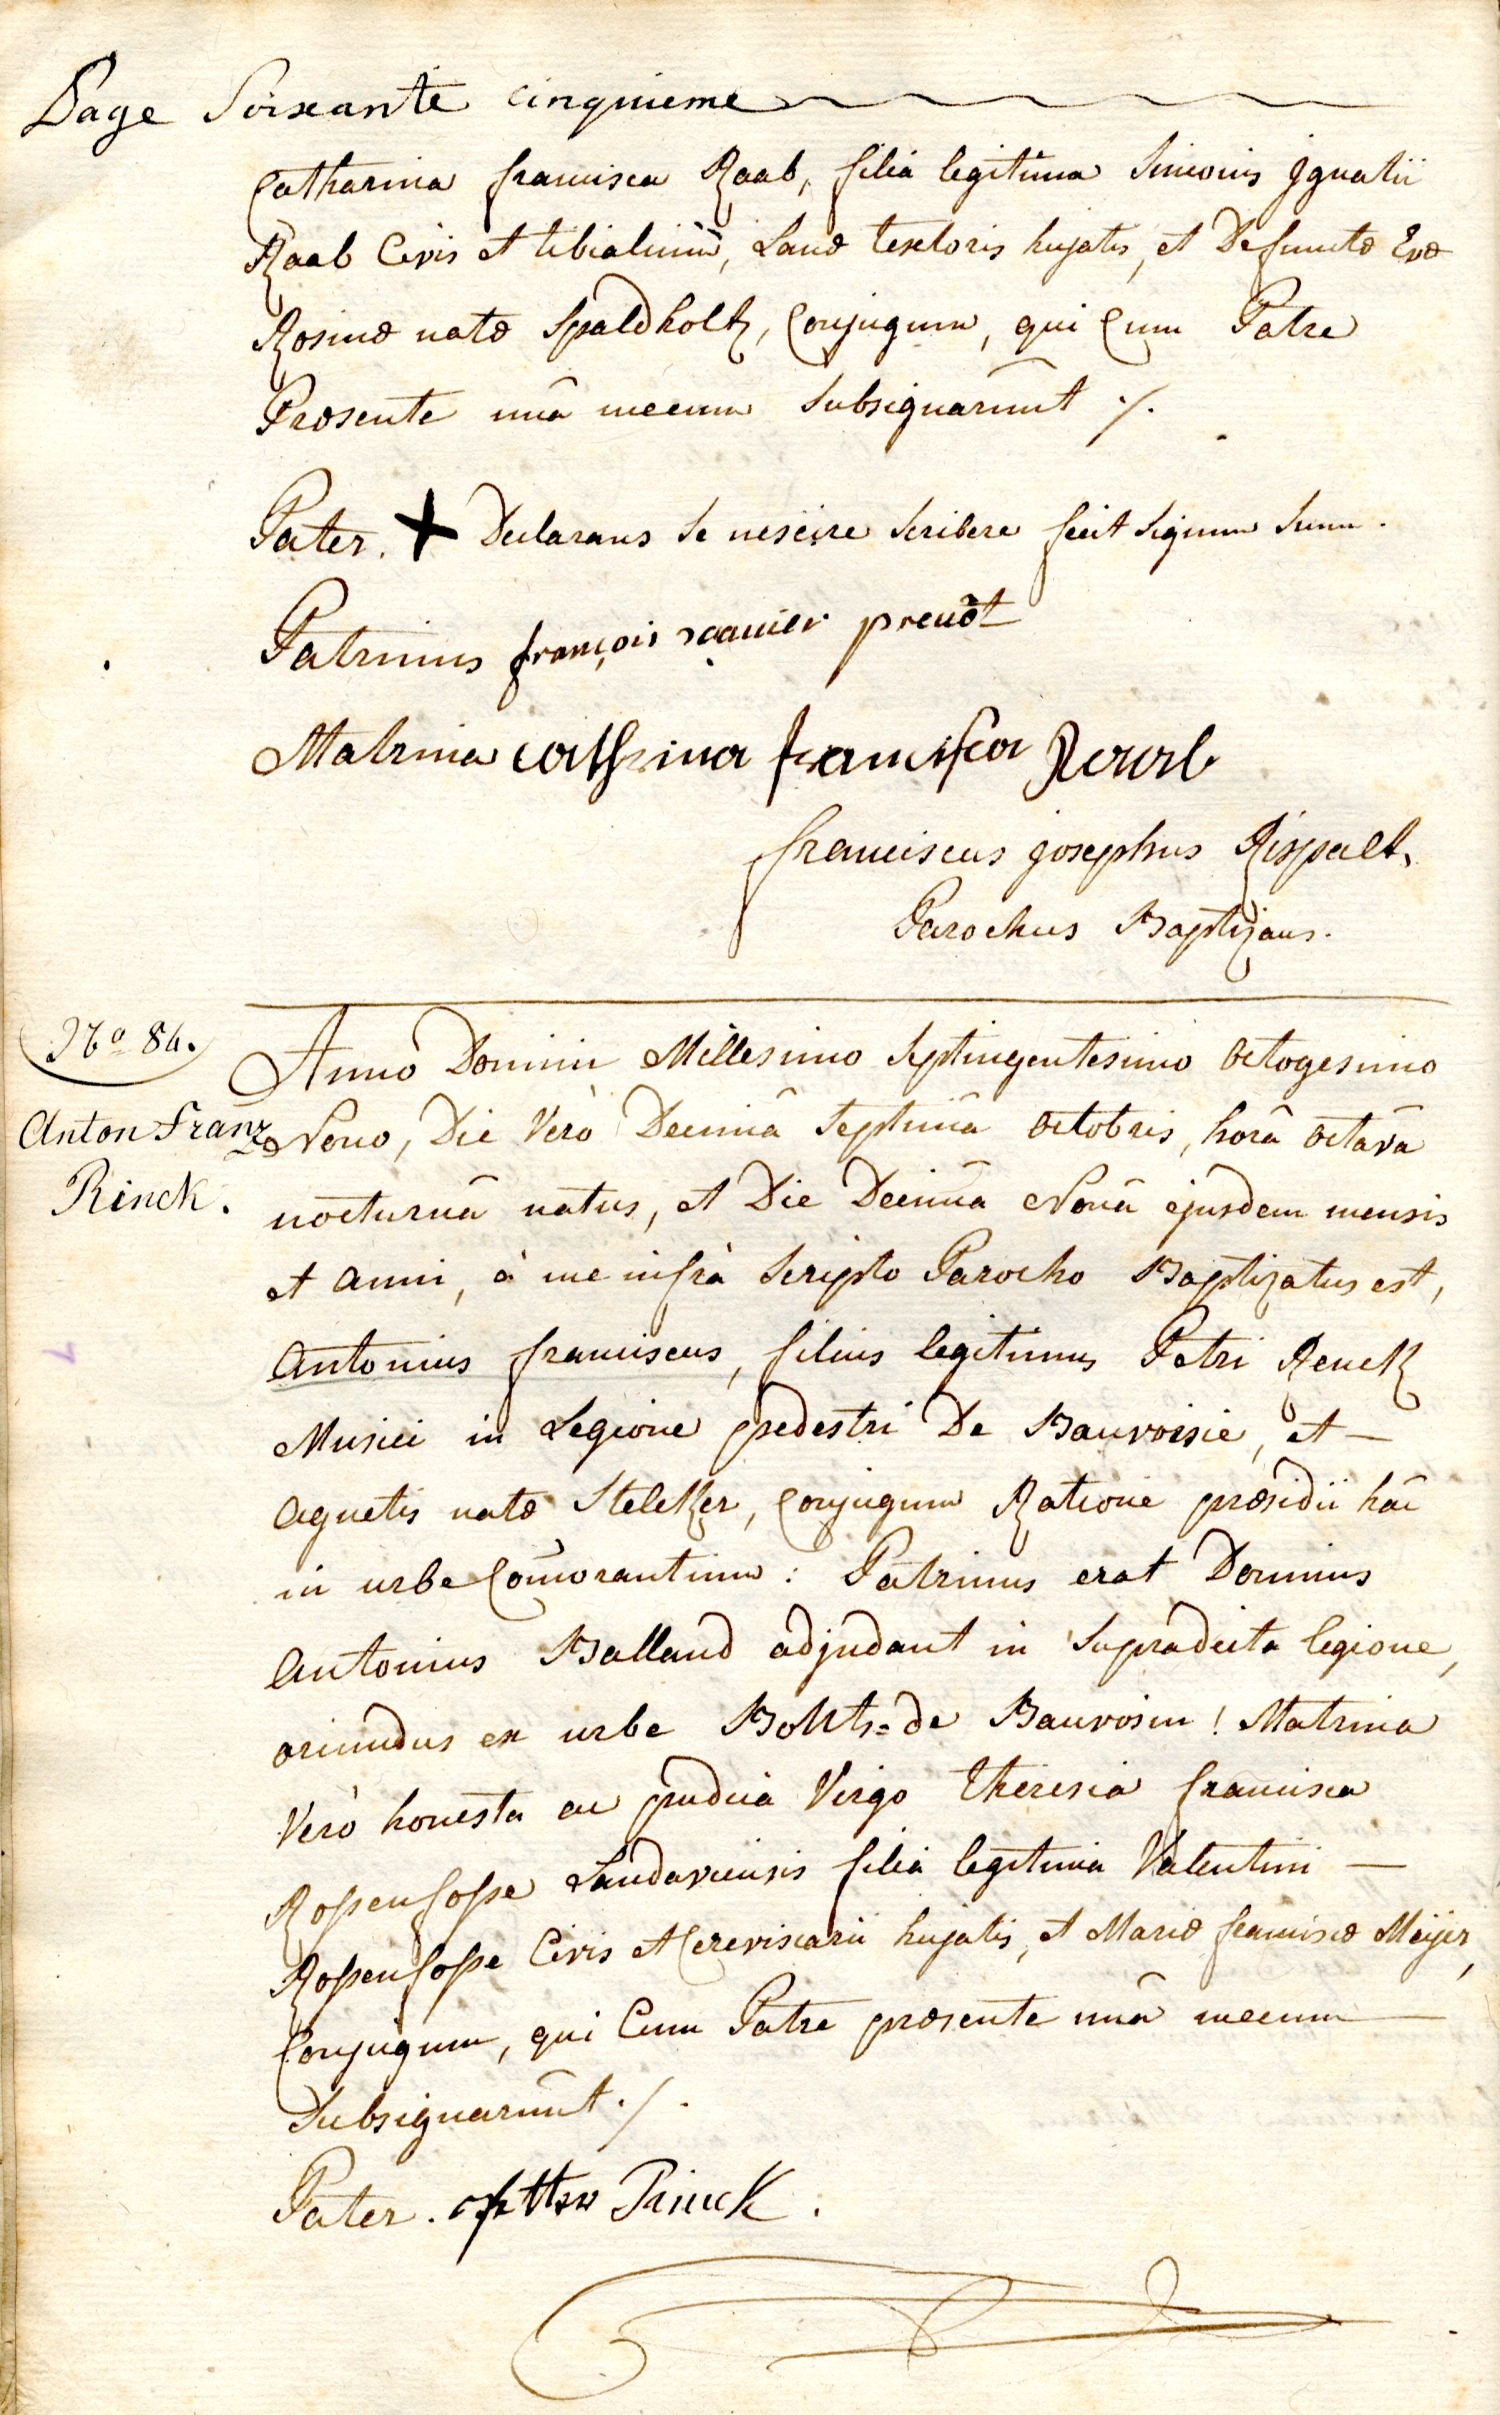 Page Soixante cinquieme
Catharina francisca Raab, filia legitima Simonis Ignatii
Raab Civis et tibialium, Lanæ textoris hujatis, et Defunctæ Evæ
Rosinæ natæ Spaldholtz, Conjugum, qui Cum Patre
Præsente unâ mecum Subsignarunt ./.
Pater. X Declarans Se nescire Scribere fecit Signum Suum.
Patrinus françois prevôt
Matrina Cathrina francisca Raab
franciscus josephus Rispalt,
Parochus Baptizans.
No 84.
Anton Franz
Rinck.
Anno Domini Millesimo Septingentesimo Octogesimo
Nono, Die Verò Decimâ Septimâ Octobris, horâ Octavâ
nocturnâ natus, et Die Decimâ Nonâ ejusdem mensis
et Anni, à me infrà Scripto Parocho Baptizatus est,
Antonius franciscus, filius legitimus Petri Renck
Musici in Legione pedestri De Bauvoisie, et —
Agnetis natæ Steletzer, Conjugum Ratione præsidii hâc
in urbe Com̄orantium : Patrinus erat Dominus
Antonius Balland adjudant in Supradicta legione,
oriundus ex urbe de Bauvosin ! Matrina
Verò honesta ac pudica Virgo Theresia francisca
Rossenfosse Landaviensis filia legitima Valentini —
Rossenfosse Civis et Cerevisiarii hujatis, et Mariæ franciscæ Meÿer,
Conjugum, qui Cum Patre præsente unâ mecum —
Subsignarunt ./.
Pater. Petter Rinck.